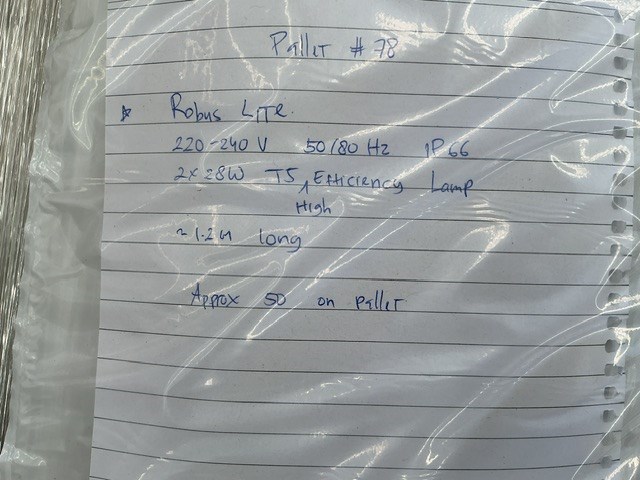 Pallet # 78
* Robus LITE.
220-240 V 50/80 Hz IP66
2x28W T5 ^ Efficiency Lamp
High
~1.2M long
Approx 50 on pallet